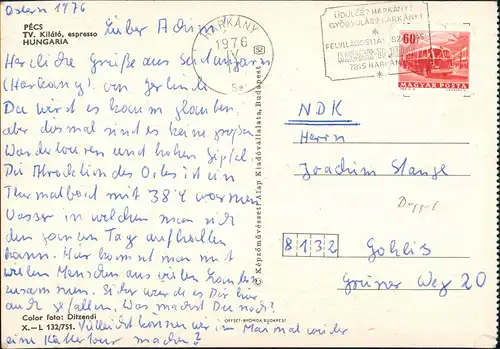 Ostern 1976
PÉCS
TV. Kilátó, espresso
HUNGARIA
Lieber Achim
Herzliche Grüße aus Südungarn
(Harkany) von Gerlinde
Du wirst es kaum glauben,
aber diesmal sind es keine großen
Wandertouren und hohen Gipfel.
Die Attraktion des Ortes ist ein
Thermalbad mit 38°C warmen
Wasser in welchem man sich
den ganzen Tag aufhalten
kann. Hier kommt man mit
vielen Menschen aus vielen Ländern
zusammen. Sicher würde es Dir hier
auch gefallen. Was machst Du noch?
Vielleicht können wir im Mai mal wieder
eine Klettertour machen?
Color foto: Ditzendi
X.—L 132/751.
© Képzőművészeti Alap Kiadóvállalata, Budapest
OFFSET-NYOMDA, BUDAPEST
HARKÁNY
1976
IV
5a
ÜDÜLÉS? HARKÁNY!
GYÓGYULÁS? HARKÁNY!
7815 HARKÁNY
60f
MAGYAR POSTA
NDK
Herrn
Joachim Stange
8132 Gohlis
Grüner Weg 20